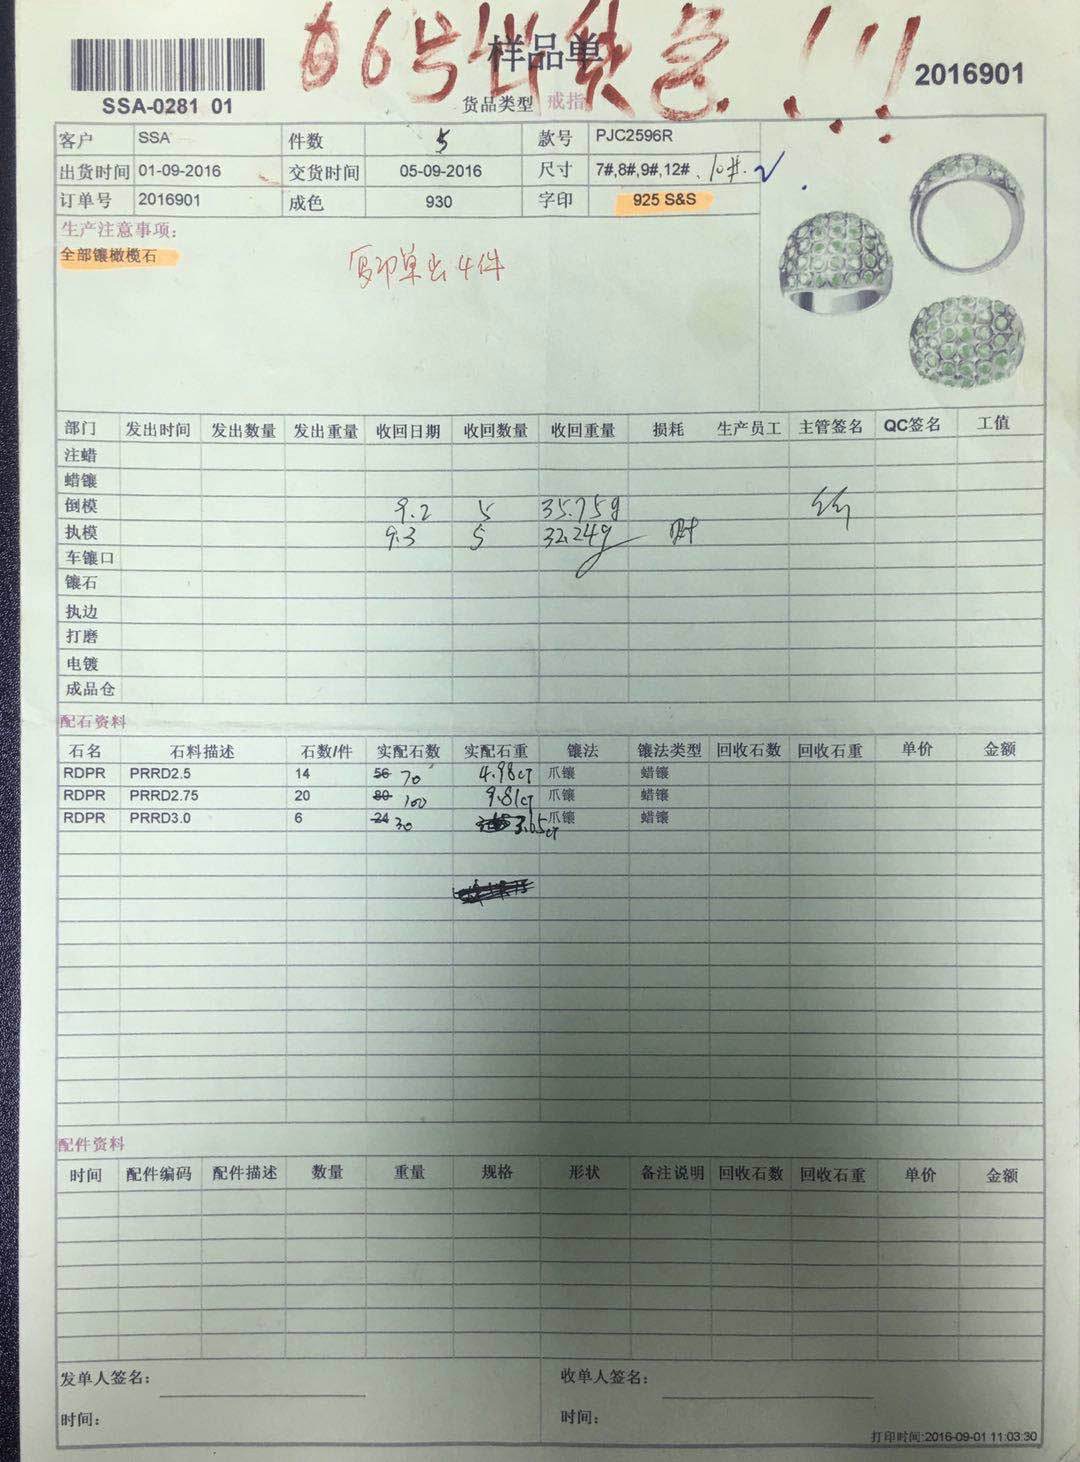 06号出货急!!!
样品单
2016901
SSA-0281 01
货品类型 戒指
客户 SSA 件数 5 款号 PJC2596R
出货时间 01-09-2016 交货时间 05-09-2016 尺寸 7#,8#,9#,12#、10#.
订单号 2016901 成色 930 字印 925 S&S
生产注意事项:
全部镶橄榄石
复印单出4件
部门 发出时间 发出数量 发出重量 收回日期 收回数量 收回重量 损耗 生产员工 主管签名 QC签名 工值
注蜡
蜡镶
倒模 9.2 5 35.75g
执模 9.3 5 32.24g
车镶口
镶石
执边
打磨
电镀
成品仓
配石资料
石名 石料描述 石数/件 实配石数 实配石重 镶法 镶法类型 回收石数 回收石重 单价 金额
RDPR PRRD2.5 14 56 70 4.98ct 爪镶 蜡镶
RDPR PRRD2.75 20 80 100 9.81ct 爪镶 蜡镶
RDPR PRRD3.0 6 24 30 3.65ct 爪镶 蜡镶
配件资料
时间 配件编码 配件描述 数量 重量 规格 形状 备注说明 回收石数 回收石重 单价 金额
发单人签名: 收单人签名:
时间: 时间:
打印时间:2016-09-01 11:03:30